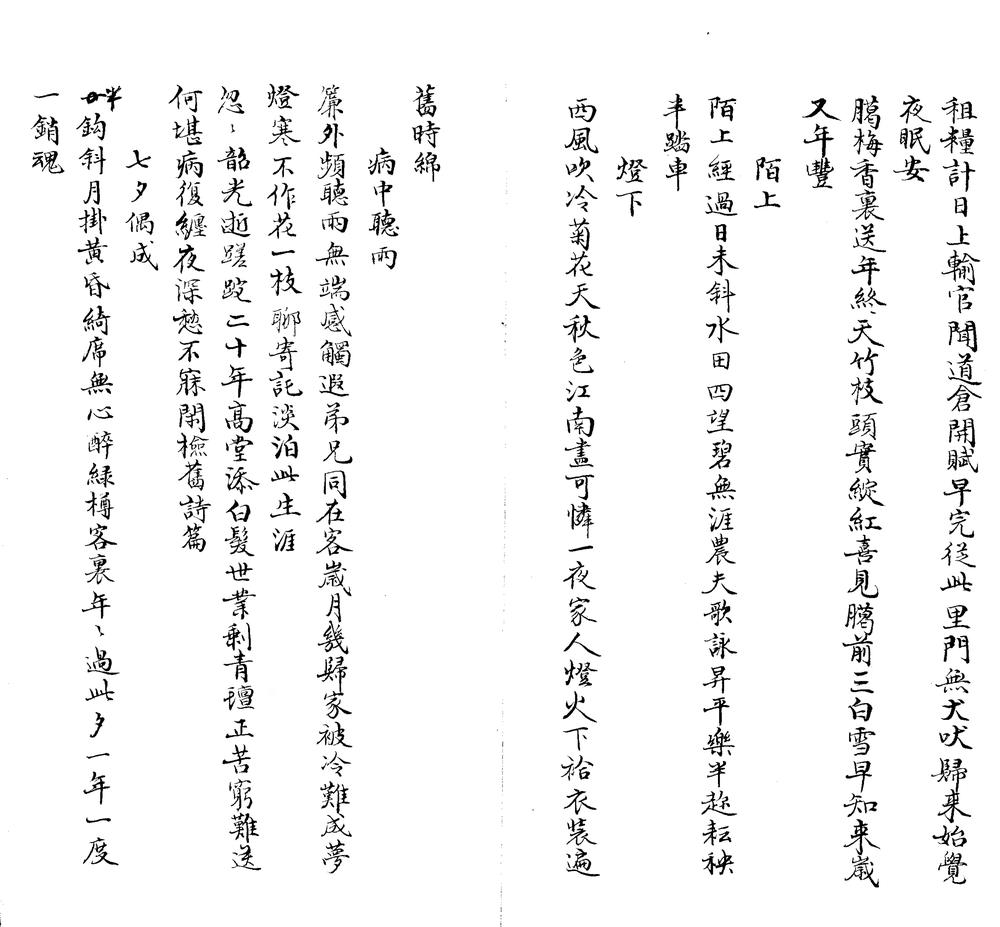 租糧計日上輸官聞道倉開賦早完從此里門無犬吠歸來始覺
夜眠安
臈梅香裏送年終天竹枝頭實綻紅喜見臈前三白雪早知来歲
又年豐
陌上
陌上經過日未斜水田四望碧無涯農夫歌詠昇平樂半趂耘秧
半踏車
燈下
西風吹冷菊花天秋色江南盡可憐一夜家人燈火下袷衣裝遍
舊時綿
病中聽雨
簾外頻聽雨無端感觸遐弟兄同在客歲月幾歸家被冷難成夢
燈寒不作花一枝聊寄託淡泊此生涯
忽〻韶光逝蹉跎二十年高堂添白髮世業剩青氊正苦窮難送
何堪病復纏夜深愁不寐閑檢舊詩篇
七夕偶成
半鈎斜月掛黃昏綺席無心醉緑樽客裏年〻過此夕一年一度
一銷魂